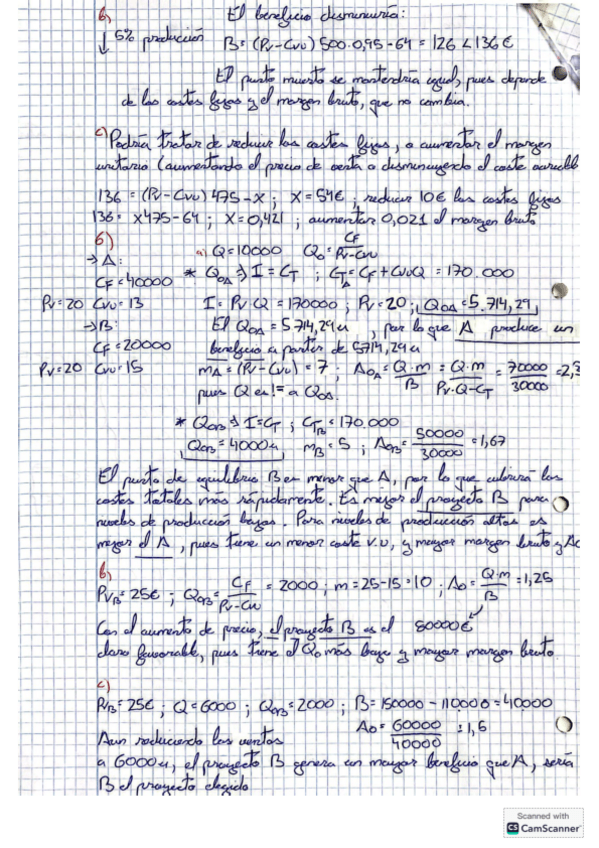 b) El beneficio disminuiría:
↓ 5% producción B = (Pv-Cvu) 500·0,95-64 = 126 < 136€
El punto muerto se mantendría igual, pues depende
de los costes fijos y el margen bruto, que no cambia.
c) Podría tratar de reducir los costes fijos, o aumentar el margen
unitario (aumentando el precio de venta o disminuyendo el coste variable
136 = (Pv-Cvu) 475 - X ; X = 54€ ; reducir 10€ los costes fijos
136 = x475-64 ; X = 0,421 ; aumentar 0,021 el margen bruto
6) a) Q = 10000 Q₀ = CF/Pv-Cvu
→ A:
CF = 40000 * Q₀A ⇒ I = CT ; CTA = CF + CvuQ = 170.000
Pv = 20 Cvu = 13 I = Pv·Q = 170000 ; Pv = 20 ; Q₀A = 5.714,29
→ B: El Q₀A = 5714,29u , por lo que A produce un
CF = 20000 beneficio a partir de 5714,29u
Pv = 20 Cvu = 15 mA = (Pv-Cvu) = 7 ; A₀A = Q·m/B = Q·m/Pv·Q-CT = 70000/30000 = 2,3
pues Q es != a Q₀A.
* Q₀B ⇒ I = CT ; CTB = 170.000
Q₀B = 4000u mB = 5 ; A₀B = 50000/30000 = 1,67
El punto de equilibrio B es menor que A, por lo que cubrirá los
costes totales más rápidamente. Es mejor el proyecto B para
niveles de producción bajos. Para niveles de producción altos es
mejor el A, pues tiene un menor coste v.u, y mayor margen bruto y A₀
b)
PvB = 25€ ; Q₀B = CF/Pv-Cvu = 2000 ; m = 25-15 = 10 ; A₀ = Q·m/B = 1,25
Con el aumento de precio, el proyecto B es el 80000€
claro favorable, pues tiene el Q₀ más bajo y mayor margen bruto.
c)
PvB = 25€ ; Q = 6000 ; Q₀B = 2000 ; B = 150000 - 110000 = 40000
A₀ = 60000/40000 = 1,5
Aun reduciendo las ventas
a 6000u, el proyecto B genera un mayor beneficio que A, sería
B el proyecto elegido
Scanned with
CS CamScanner